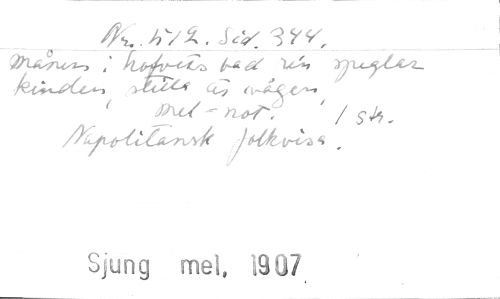 Nr. 512. Sid. 344.
Månen i hafvets bad ren speglar
kinden, stilla är vågen,
mel-not. 1 str.
Napolitansk folkvisa.
Sjung mel. 1907